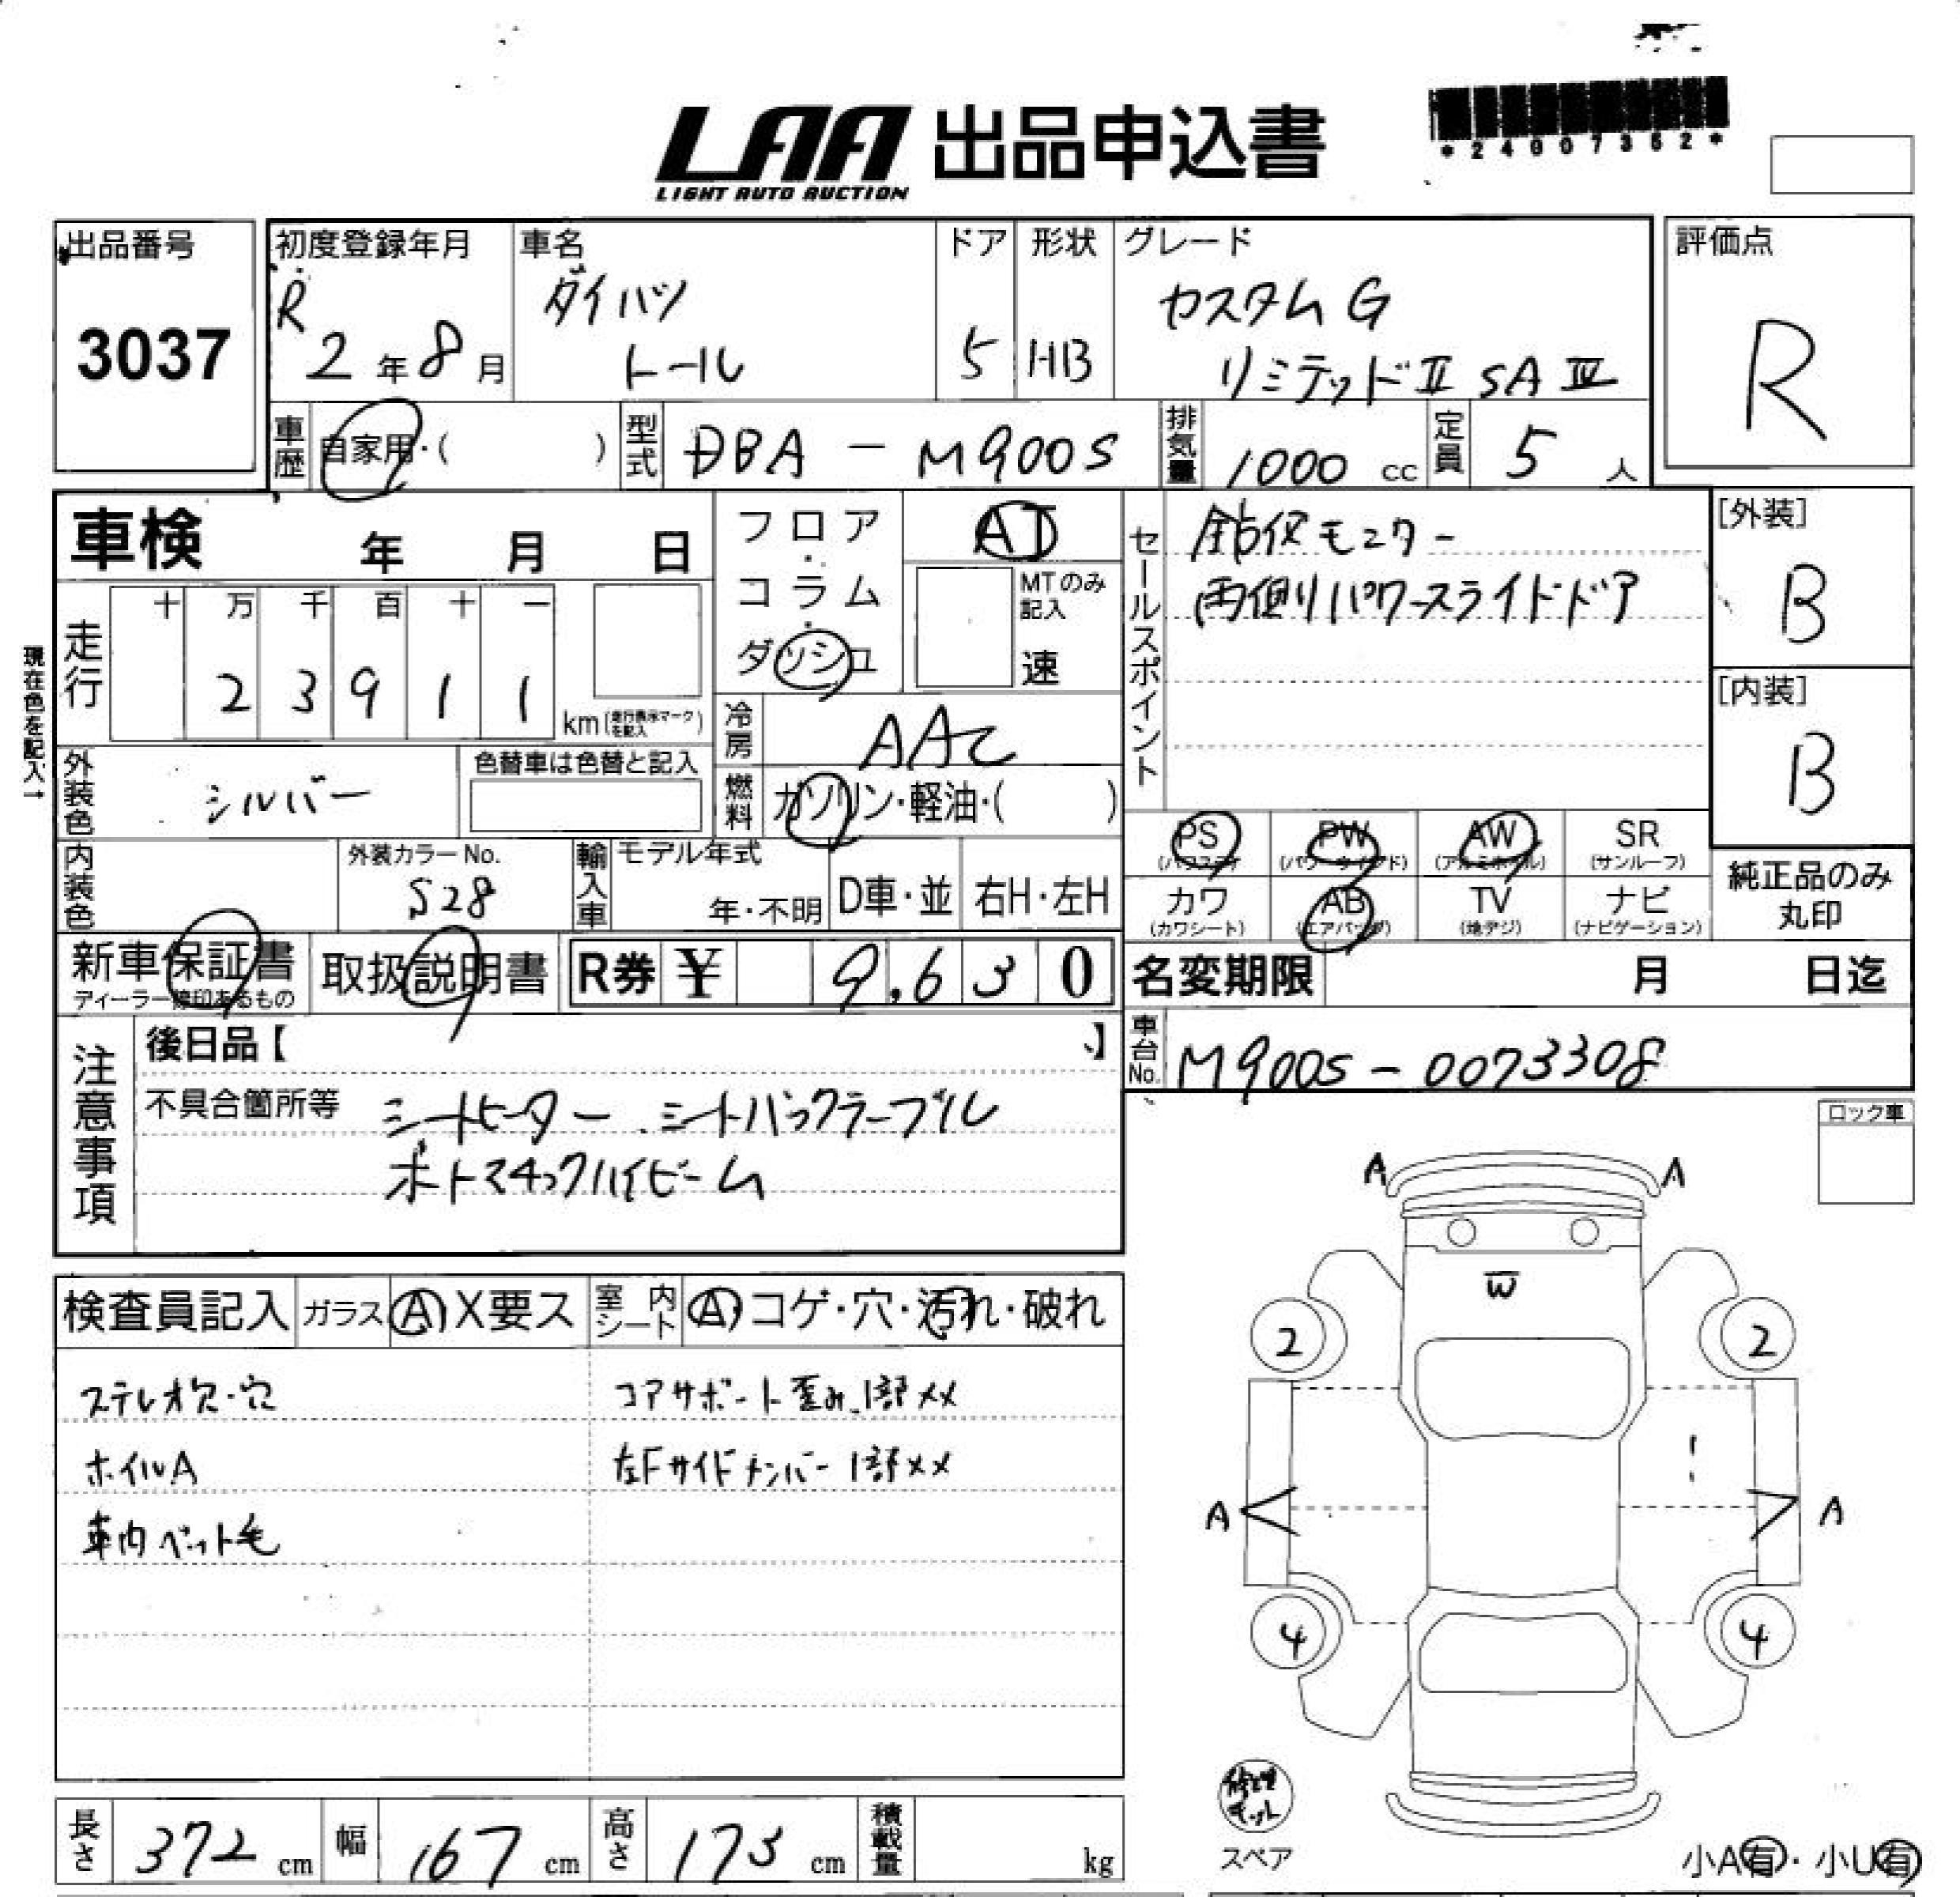 LAA 出品申込書
LIGHT AUTO AUCTION
*24007362*
出品番号
3037
初度登録年月
R
2年8月
車名
ダイハツ
トール
ドア
5
形状
HB
グレード
カスタム G
リミテッドⅡ SA Ⅳ
評価点
R
車歴
自家用・( )
型式
DBA - M900S
排気量
1000 cc
定員
5 人
車検 年 月 日
フロア・コラム・ダッシュ
AT
MTのみ記入
速
セールスポイント
モニター
両側パワースライドドア
[外装]
B
[内装]
B
現在色を記入→
走行
十 万 千 百 十 一
2 3 9 1 1
km(走行表示マークを記入)
冷房
AAC
外装色
シルバー
色替車は色替と記入
燃料
ガソリン・軽油・( )
内装色
外装カラーNo.
S28
輸入車
モデル年式
年・不明
D車・並
右H・左H
PS
(パワステ)
PW
(パワーウインド)
AW
(アルミホイル)
SR
(サンルーフ)
カワ
(カワシート)
AB
(エアバッグ)
TV
(地デジ)
ナビ
(ナビゲーション)
純正品のみ
丸印
新車保証書
ディーラー捺印あるもの
取扱説明書
R券 ¥ 9,630
名変期限 月 日迄
車台No.
M900S - 0073308
注意事項
後日品【 】
不具合箇所等
シートヒーター、シートバックテーブル
オートマチックハイビーム
ロック車
検査員記入
ガラス
A X要ス
室内シート
A・コゲ・穴・汚れ・破れ
ステレオ欠・穴
ホイルA
車内ペット毛
コアサポート歪み、1部××
左Fサイドメンバー 1部××
A
A
W
2
2
A
A
4
4
修理キット
スペア
小A有・小U有
長さ
372 cm
幅
167 cm
高さ
173 cm
積載量
kg